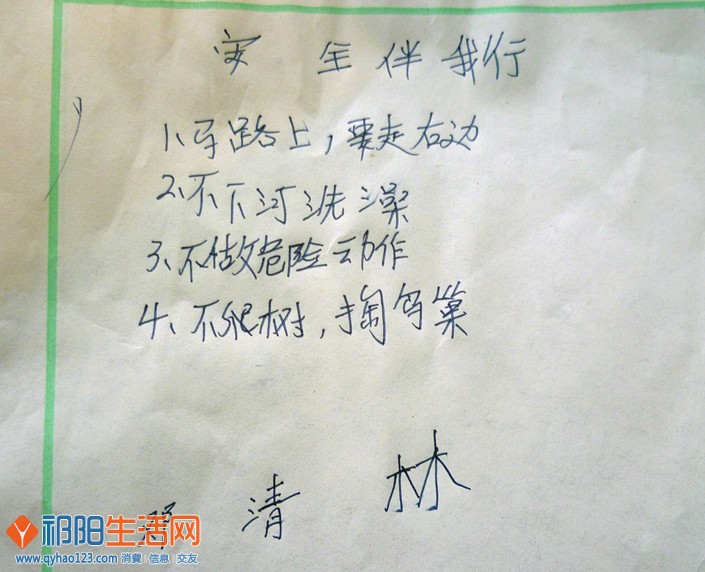 安全伴我行
1、马路上，要走右边
2、不下河洗澡
3、不做危险动作
4、不爬树，掏鸟巢
清林
祁阳生活网
www.qyhao123.com 消費 信息 交友